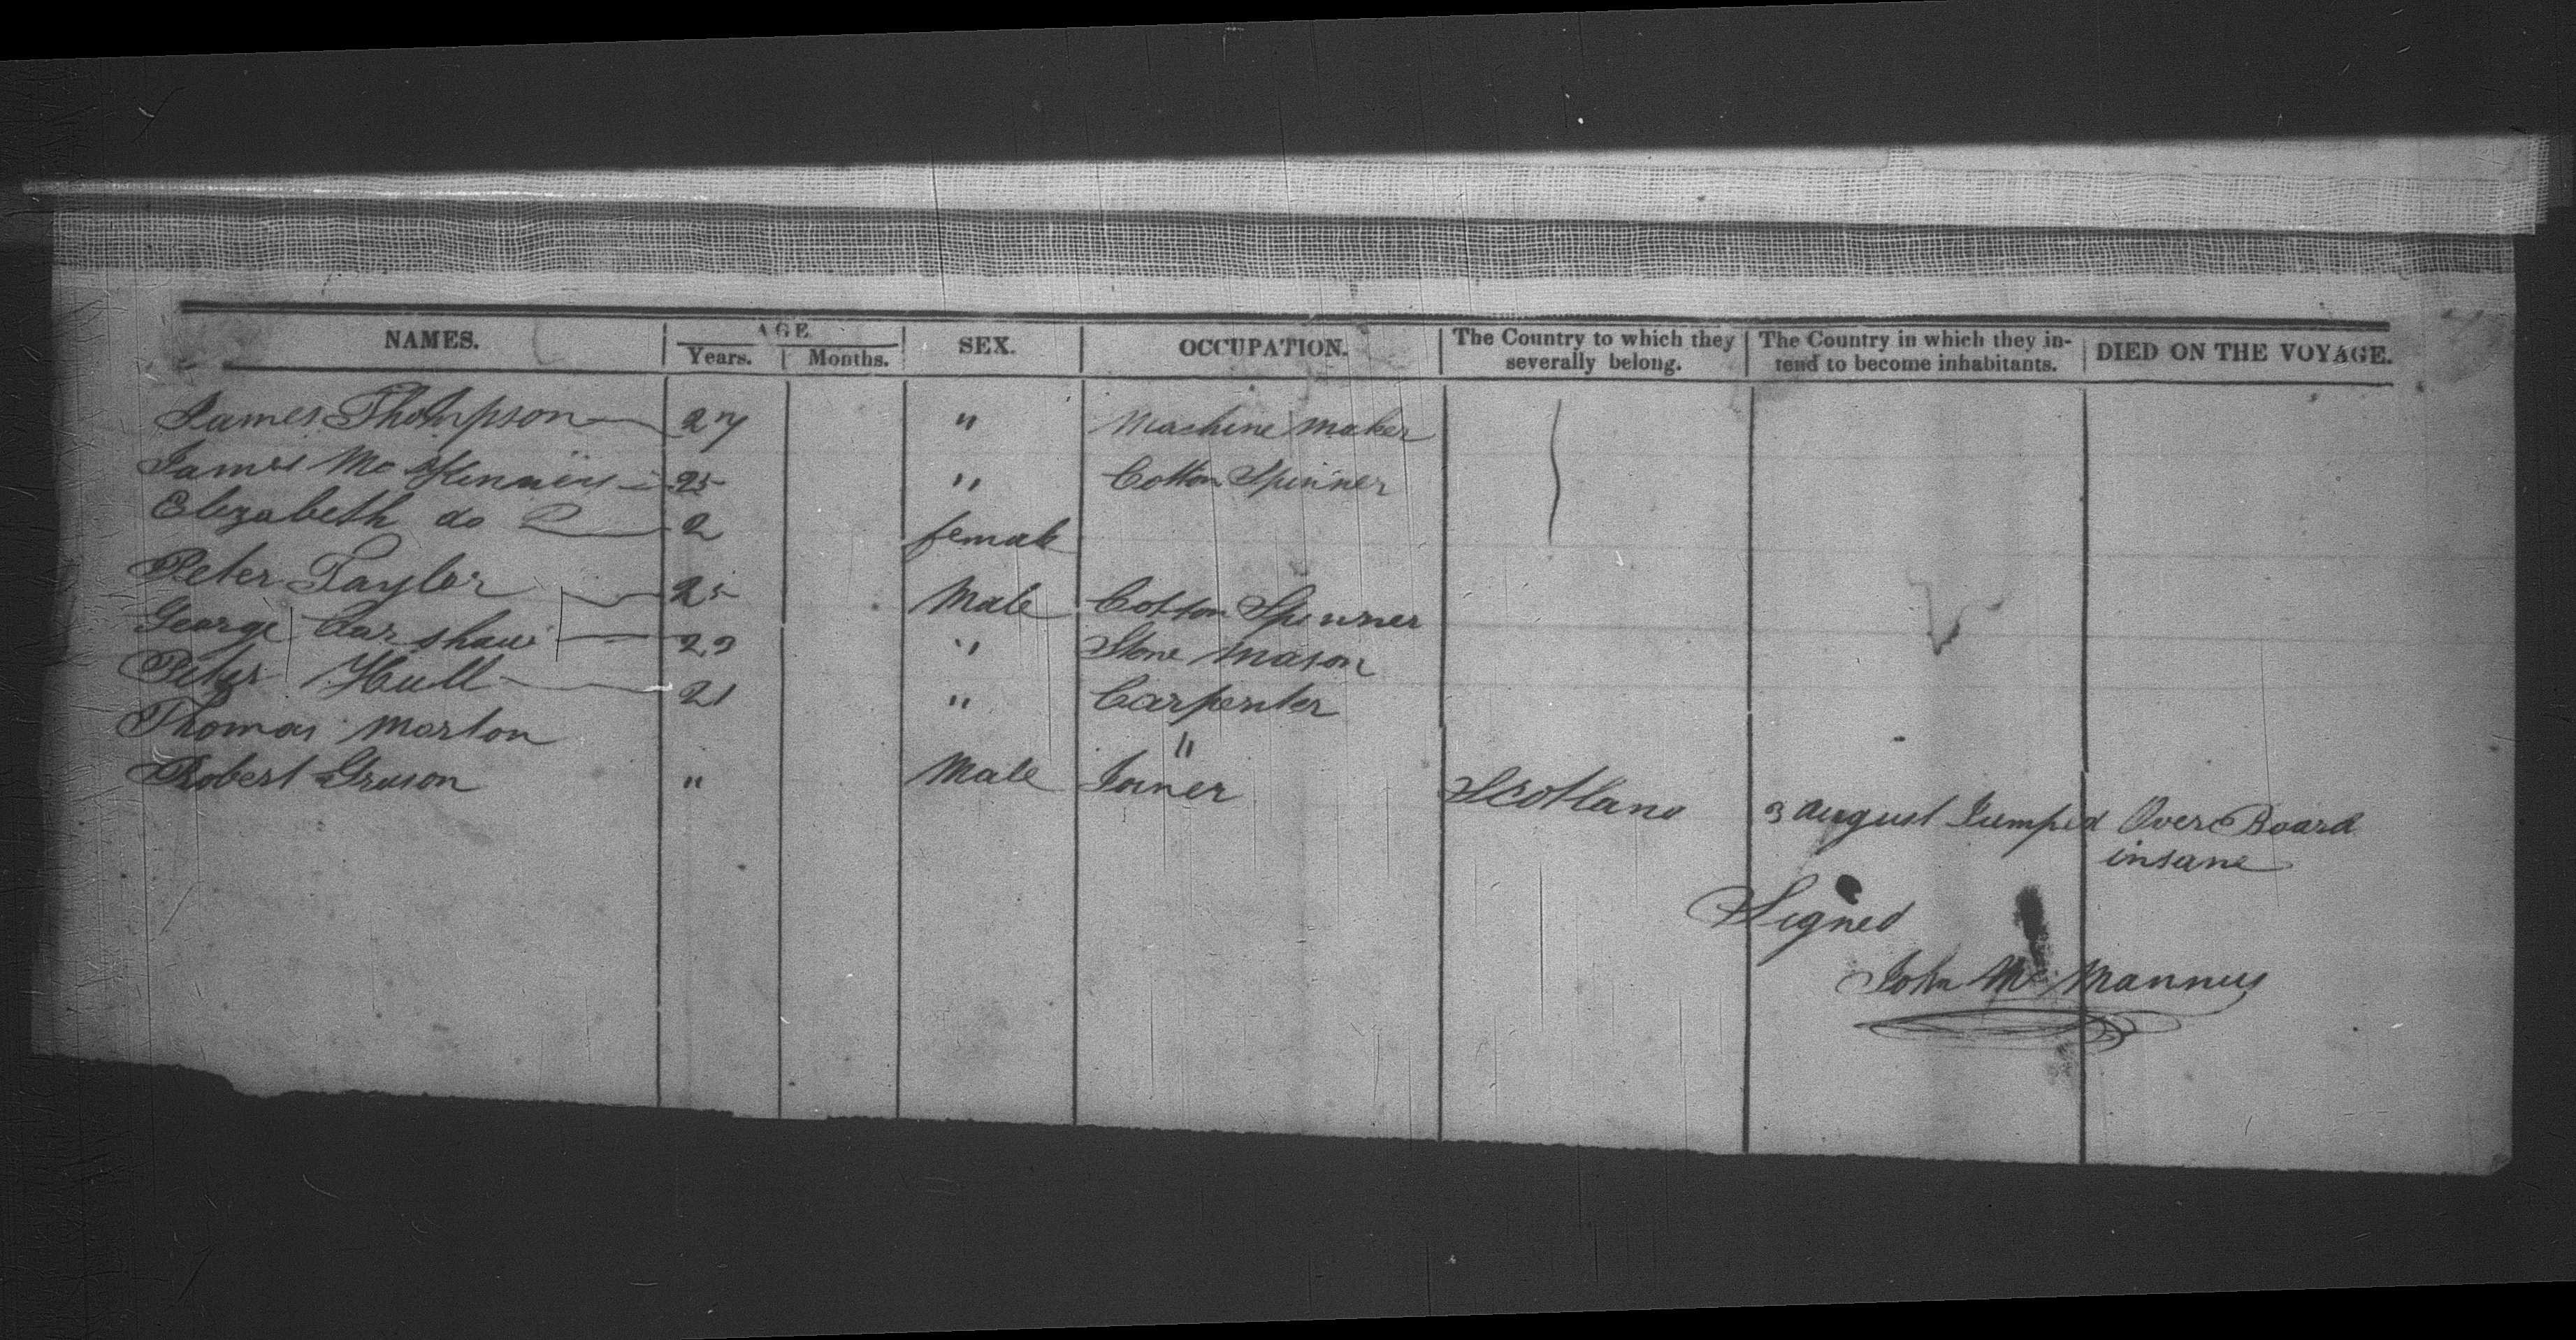 NAMES. AGE. SEX. OCCUPATION. The Country to which they severally belong. The Country in which they in- tend to become inhabitants. DIED ON THE VOYAGE.
Years. Months.
James Thompson 27 " Machine Maker
James Mc 25 " Cotton Spinner
Elizabeth do 2 female
Peter Taylor 25 Male Cotton Spinner
George Carshaw 23 " Stone Mason
Peter Hull 21 " Carpenter
Thomas Morton "
Robert " Male Joiner Scotland 3 August Jumped Over Board
insane
Signed
John Mc Mannus